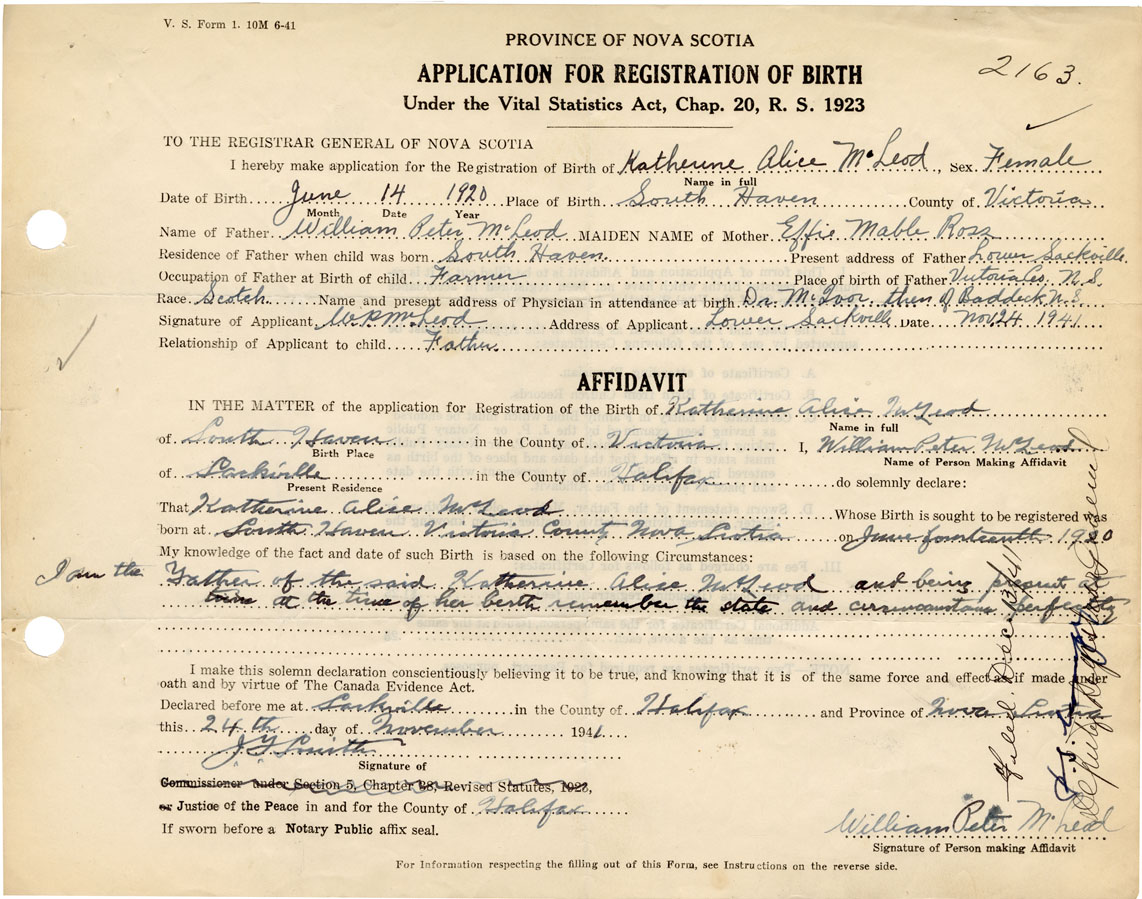 V. S. Form 1. 10M 6-41
PROVINCE OF NOVA SCOTIA
2163.
APPLICATION FOR REGISTRATION OF BIRTH
Under the Vital Statistics Act, Chap. 20, R. S. 1923
TO THE REGISTRAR GENERAL OF NOVA SCOTIA
I hereby make application for the Registration of Birth of Katherine Alice McLeod, Sex Female
Name in full
Date of Birth June 14 1920 Place of Birth South Haven County of Victoria
Month Date Year
Name of Father William Peter McLeod MAIDEN NAME of Mother Effie Mable Ross
Residence of Father when child was born South Haven Present address of Father Lower Sackville
Occupation of Father at Birth of child Farmer Place of birth of Father Victoria Co. N.S.
Race Scotch Name and present address of Physician in attendance at birth Dr. McIvor then of Baddeck N.S
Signature of Applicant W P McLeod Address of Applicant Lower Sackville Date Nov 24 1941
Relationship of Applicant to child Father
AFFIDAVIT
IN THE MATTER of the application for Registration of the Birth of Katherine Alice McLeod
Name in full
of South Haven in the County of Victoria I, William Peter McLeod
Birth Place Name of Person Making Affidavit
of Sackville in the County of Halifax do solemnly declare:
Present Residence
That Katherine Alice McLeod Whose Birth is sought to be registered was
born at South Haven Victoria County Nova Scotia on June fourteenth 1920
My knowledge of the fact and date of such Birth is based on the following Circumstances:
I am the Father of the said Katherine Alice McLeod and being present at
time at the time of her berth remember the state and circumstances perfectly
I make this solemn declaration conscientiously believing it to be true, and knowing that it is of the same force and effect as if made under
oath and by virtue of The Canada Evidence Act.
Declared before me at Sackville in the County of Halifax and Province of Nova Scotia
this 24th day of November 1941
J G Smith
Signature of
Commissioner under Section 5, Chapter 38, Revised Statutes, 1923,
or Justice of the Peace in and for the County of Halifax
If sworn before a Notary Public affix seal.
William Peter McLeod
Signature of Person making Affidavit
For Information respecting the filling out of this Form, see Instructions on the reverse side.
Filed Dec 13/41
Deputy Registrar General